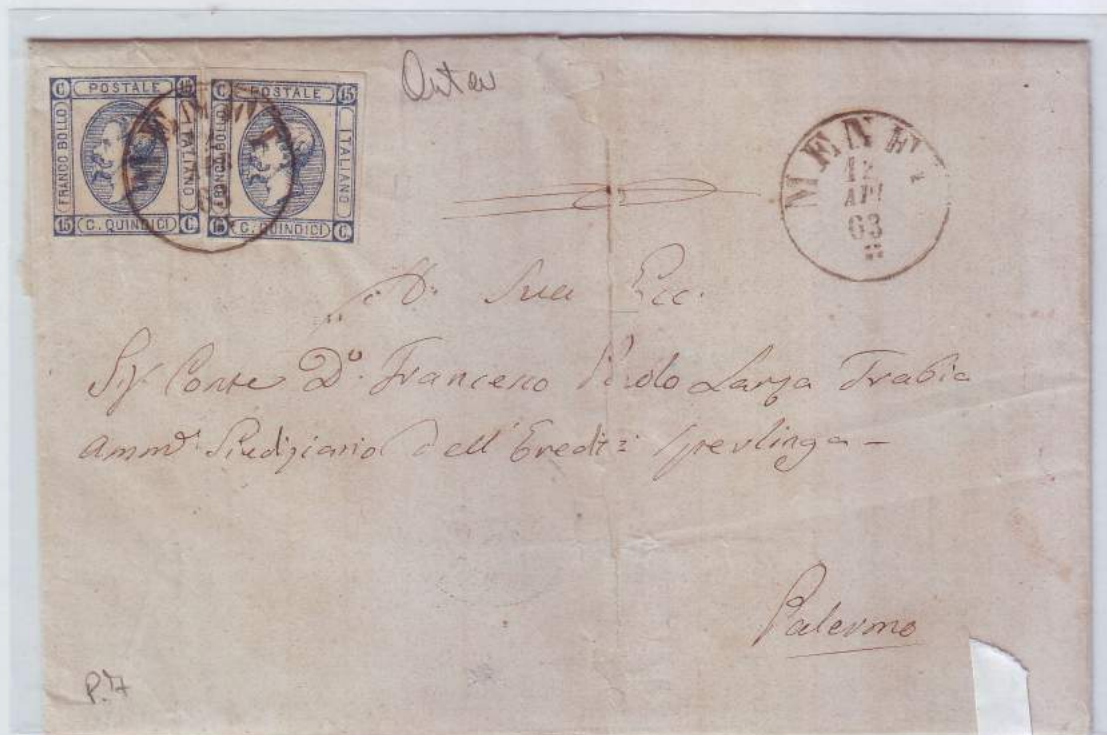 C POSTALE 15
FRANCO BOLLO
ITALIANO
15 C. QUINDICI C
C POSTALE 15
FRANCO BOLLO
ITALIANO
15 C. QUINDICI C
MENF
12
AP
63
A Sua Ecc.
Sig. Conte D. Francesco Paolo Lanza Trabia
Ammre Giudiziario dell' Eredità Sperlinga
Palermo
P. 7